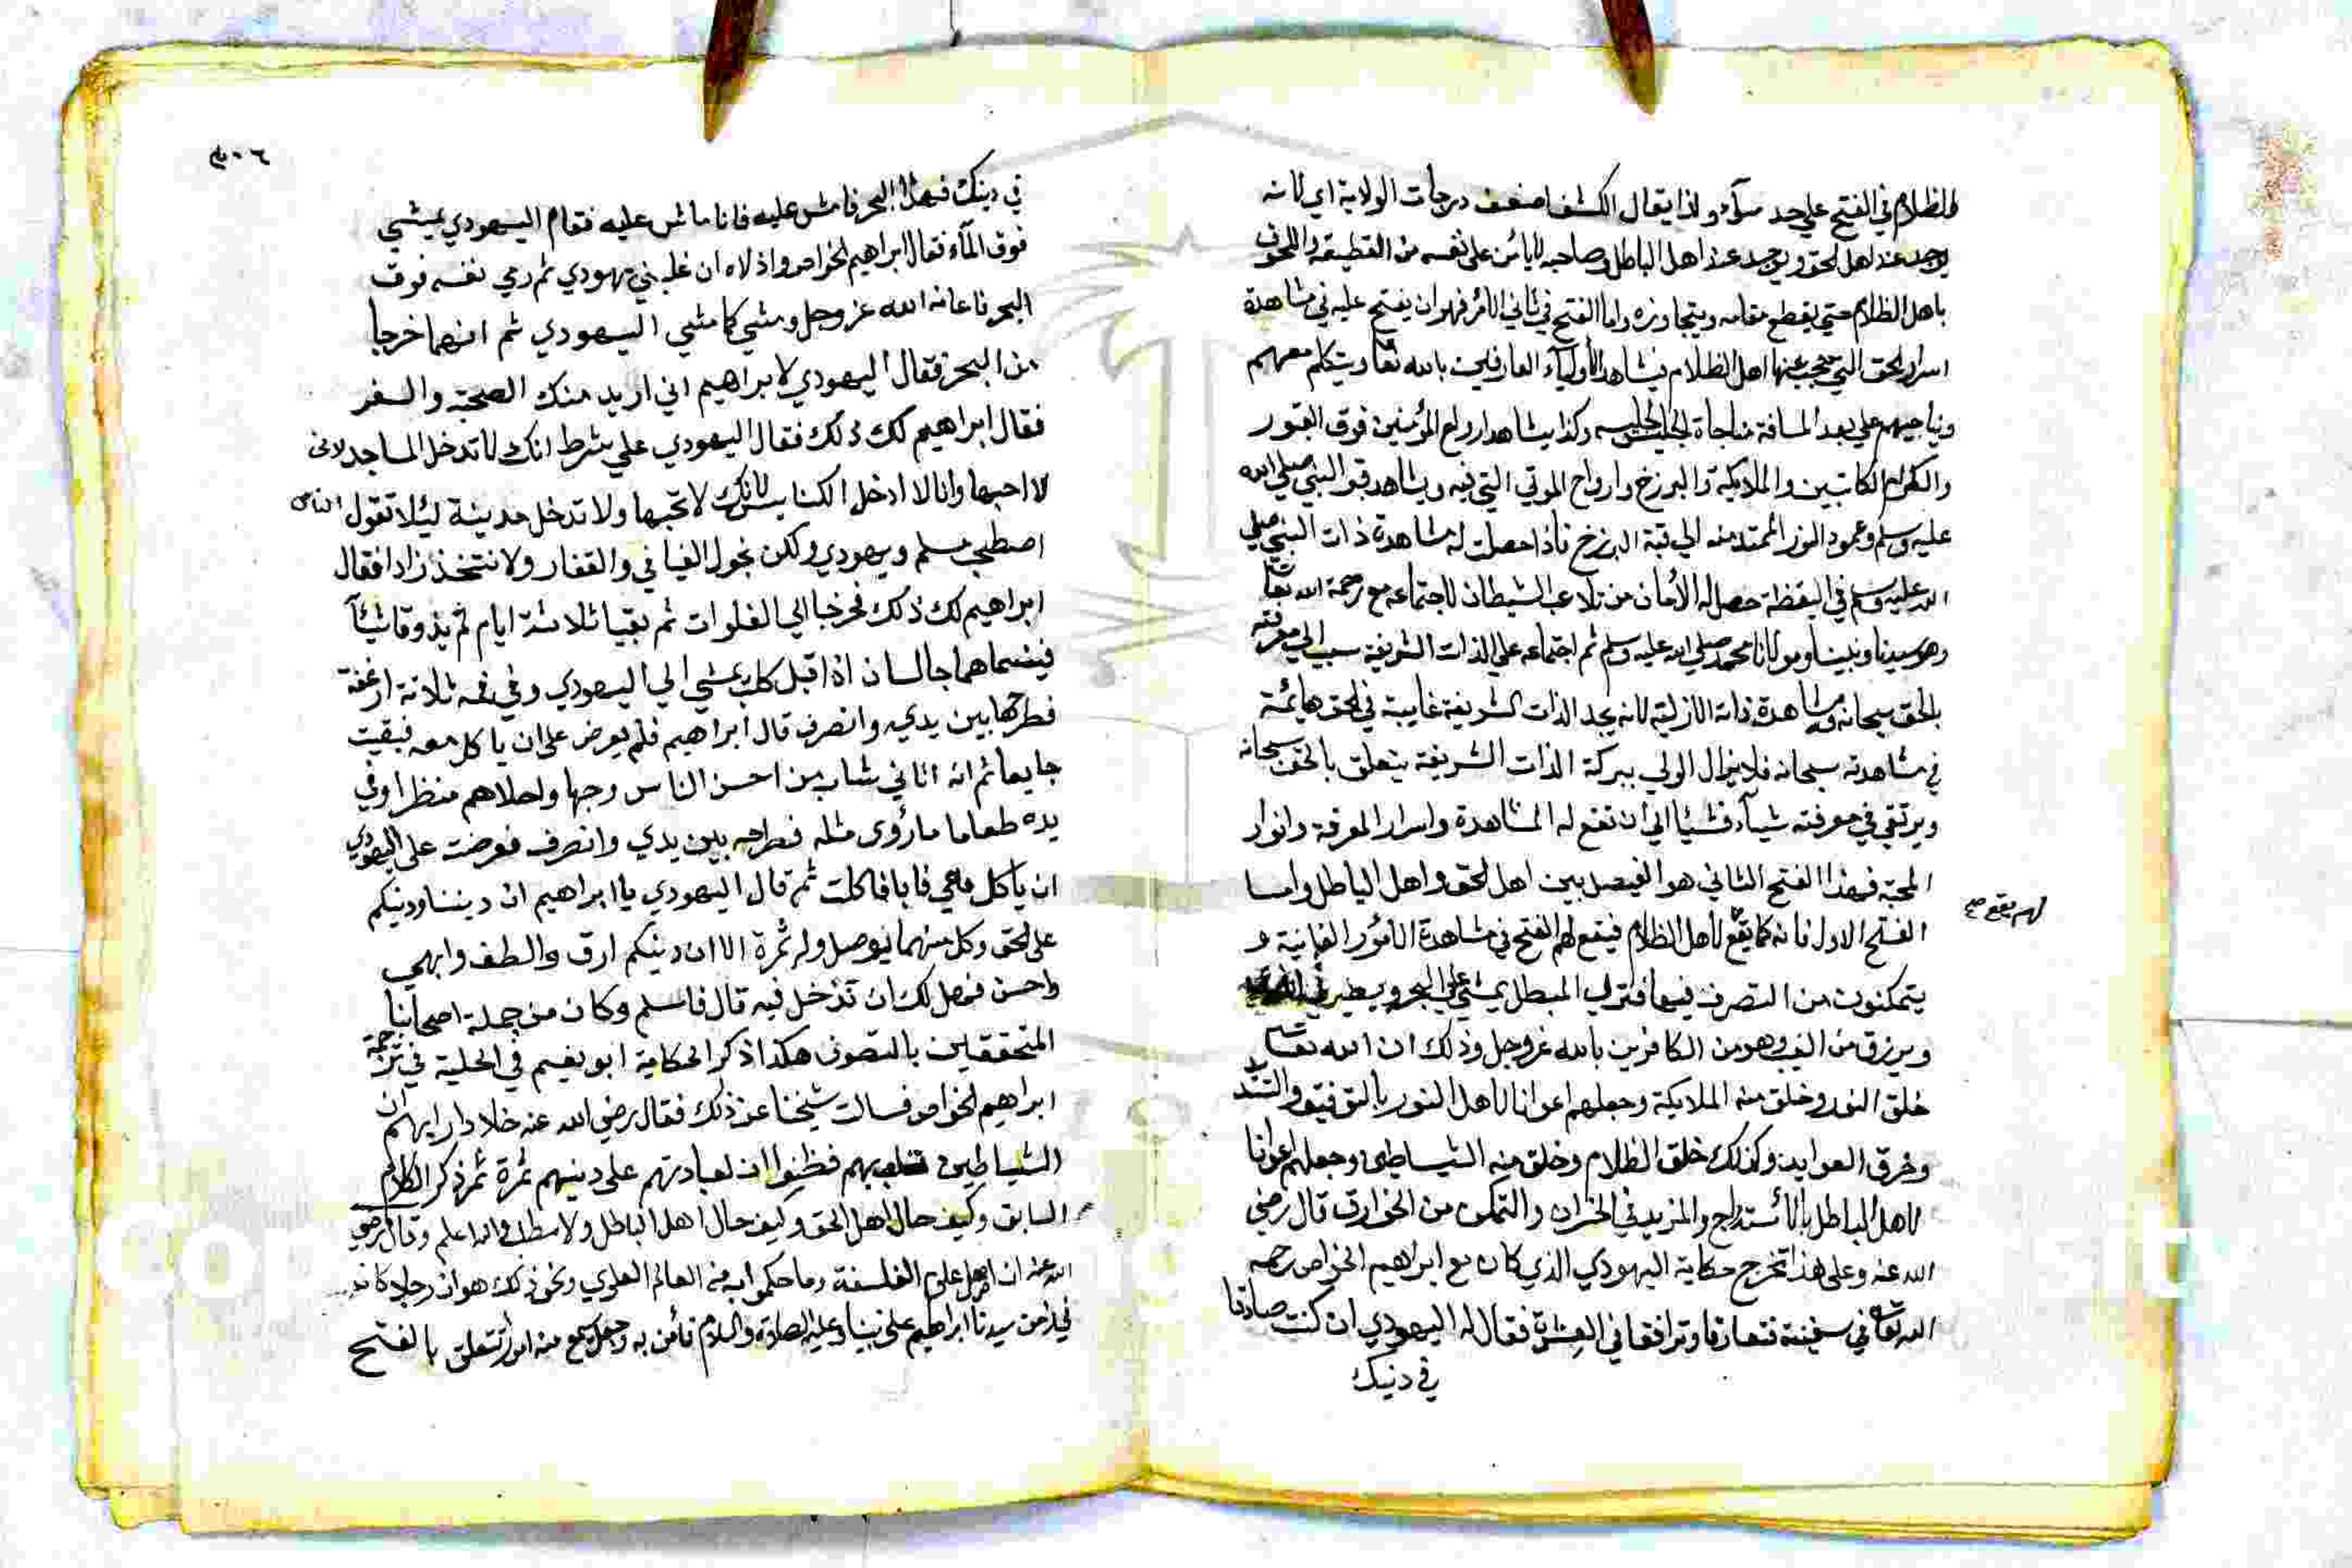 والظلام في الفتح علي حد سوآء ولذا يقال الكشف اضعف درجات الولاية اي لانه
يوجد عند اهل الحق ويوجد عند اهل الباطل وصاحبه لا يأمن على نفسه من القطيعة واللحوق
باهل الظلام حتي يقطع مقامه ويتجاوزه واما الفتح في ثاني الامر فهو ان يفتح عليه في مشاهدة
اسرار الحق التي حجب عنها اهل الظلام فيشاهد الأولياء العارفين بالله تعا ويتكلم معهم
ويناجيهم علي بعد المسافة مناجاة الجليس لجليسه وكذا يشاهد ارواح المؤمنين فوق القبور
والكرام الكاتبين والملايكة والبرزخ وارواح الموتي التي فيه ويشاهد قبر النبي صلي الله
عليه وسلم وعمود النور الممتد منه الي قبة البرزخ فأذا حصلت له مشاهدة ذات النبي صلي
الله عليه وسلم في اليقظة حصل له الأمان من تلاعب الشيطان لاجتماعه مع رحمة الله تعا
وهو سيدنا ونبينا ومولانا محمد صلي الله عليه وسلم ثم اجتماعه علي الذات الشريفة سبب الي معرفته
بالحق سبحانه ومشاهدة ذاته الازلية لانه يجد الذات الشريفة غايبة في الحق هايمة
في مشاهدته سبحانه فلا يزال الولي ببركة الذات الشريفة يتعلق بالحق سبحانه
ويرتقي في معرفته شيآء فشيئا الي ان تقع له المشاهدة واسرار المعرفة وانوار
المحبة فهذا الفتح الثاني هو الفيصل بين اهل الحق واهل الباطل واما
الفتح الاول فانه كما يقع لاهل الظلام فيقع لهم الفتح في مشاهدة الأمور الفانية و
لهم يقع صح
يتمكنون من التصرف فيها فتري المبطل يمشي علي البحر ويطير في
ويرزق من الغيب وهو من الكافرين بالله عز وجل وذلك ان الله تعا
خلق النور وخلق منه الملايكة وجعلهم اعوانا لاهل النور بالتوفيق والتسد
وخرق العوايد وكذلك خلق الظلام وخلق منه الشياطين وجعلهم اعوانا
لاهل الباطل بالأستدراج والمزيد في الخسران والتمكن من الخوارق قال رضي
الله عنه وعلى هذا تخرج حكاية اليهودي الذي كان مع ابراهيم الخواص رحمه
الله تعا في سفينة فتعارفا وترافقا في العشرة فقال له اليهودي ان كنت صادقا
في دنيك
٤٠٦
في دينك فهذا البحر فامش عليه فانا ماش عليه فقام اليهودي يمشي
فوق المآء فقال ابراهيم الخواص واذلاه ان غلبني يهودي ثم رمي نفسه فوق
البحر فاعانه الله عز وجل ومشي كما مشي اليهودي ثم انهما خرجا
من البحر فقال اليهودي لابراهيم اني اريد منك الصحبة والسفر
فقال ابراهيم لك ذلك فقال اليهودي علي شرط انك لا تدخل المساجد لانى
لا احبها وانا لا ادخل الكنايس لانك لا تحبها ولا تدخل مدينة ليئلا تقول الناس
اصطحب مسلم ويهودي ولكن نجول الفيافي والقفار ولا نتخذ زادا فقال
ابراهيم لك ذلك فخرجا الي الفلوات ثم بقيا ثلاثة ايام لم يذوقا شيئآ
فبينما هما جالسان اذ اقبل كلب يمشي الي اليهودي وفي فمه ثلاثة ارغفة
فطرحها بين يدي وانصرف قال ابراهيم فلم يعرض على ان ياكل معه فبقيت
جايعا ثم انه اتاني شاب من احسن الناس وجها واحلاهم منظرا وفي
يده طعاما مارؤى مثله فطرحه بين يدي وانصرف فعرضت على اليهودي
ان يأكل معي فابا فاكلت ثم قال اليهودي يا ابراهيم ان ديننا ودنيكم
على الحق وكل منهما يوصل وله ثمرة الا ان دينكم ارق والطف وابهي
واحسن فهل لك ان تدخل فيه قال فاسلم وكان من جملة اصحابنا
المتحققين بالتصوف هكذا ذكر الحكاية ابو نعيم في الحلية في ترجمة
ابراهيم الخواص فسالت شيخنا عن ذلك فقال رضي الله عنه خلا دار ابهم ان
الشياطين تلعب بهم فظنوا ان لعبادتهم على دينهم ثمرة ثم ذكر الكلام
السابق وكيف حال اهل الحق وكيف حال اهل الباطل ولا مطل والله اعلم وقال رضي
الله عنه ان اصل علم الفلسفة وما حكموا به في العالم العلوي ونحو ذلك هو ان رجلا كان
في زمن سيدنا ابراهيم على نبينا وعليه الصلاة والسلام فأمن به وجعل يسمع منه امورا تتعلق بالفتح